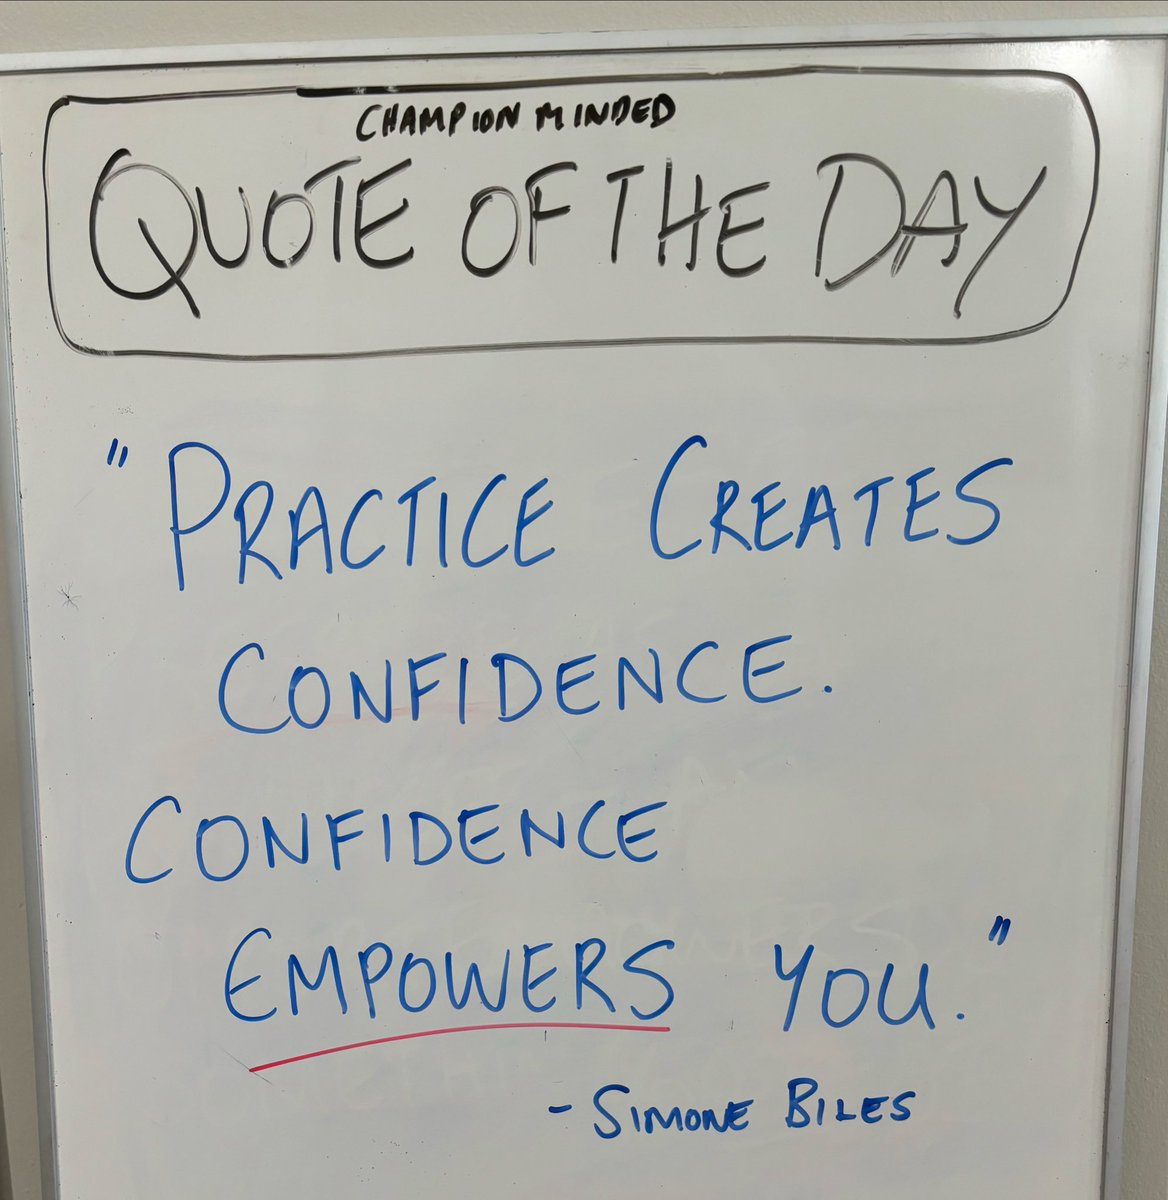 CHAMPION MINDED
QUOTE OF THE DAY
"PRACTICE CREATES
CONFIDENCE.
CONFIDENCE
EMPOWERS YOU."
- SIMONE BILES